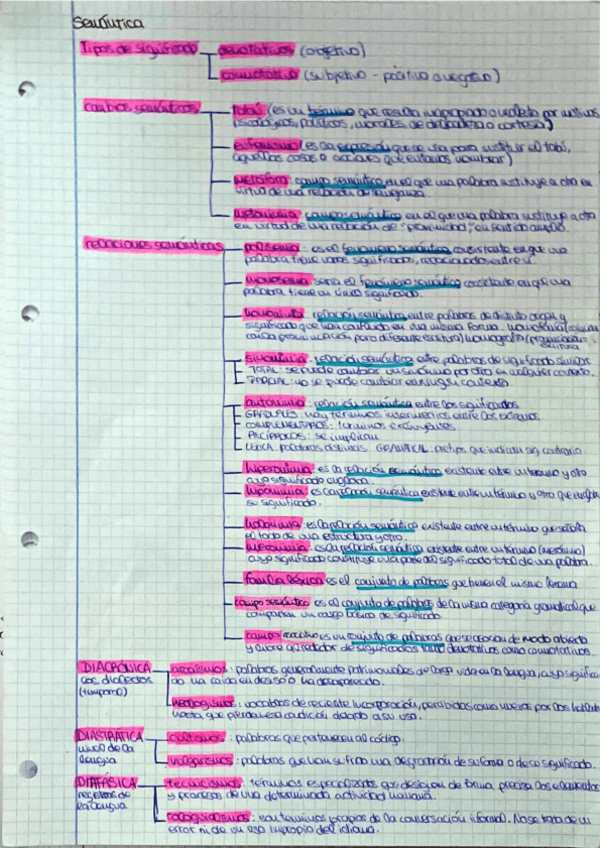 Semántica
Tipos de significado denotativos (objetivo)
connotativo (subjetivo - positivo o negativo)
cambios semánticos tabú (es un término que resulta inapropiado o molesto por motivos
psicológicos, políticos, morales, de delicadeza o cortesía)
eufemismo (es la expresión que se usa para sustituir el tabú,
aquellas cosas o acciones que evitamos nombrar)
metáfora: campo semántico en el que una palabra sustituye a otra en
virtud de una relación de semejanza.
metonimia: campo semántico en el que una palabra sustituye a otra
en virtud de una relación de "proximidad", en sentido amplio.
relaciones semánticas polisemia: es el fenómeno semántico consistente en que una
palabra tiene varios significados, relacionados entre sí.
monosemia: sería el fenómeno semántico consistente en que una
palabra tiene un único significado.
homonimia: relación semántica entre palabras de distinto origen y
significado que han confluido en una misma forma. homofonía
misma pronunciación pero diferente escritura) homografía (pronunciación
escritura
sinonimia: relación semántica entre palabras de significado similar
TOTAL: se puede cambiar un sinónimo por otro en cualquier contexto.
PARCIAL: no se puede cambiar en ningún contexto
antonimia: relación semántica entre dos significados
GRADUALES: hay términos intermedios entre los extremos
COMPLEMENTARIOS: términos excluyentes
RECÍPROCOS: se implican
LÉXICA: palabras distintas GRAMATICAL: prefijos que indican sig. contrario.
hiperonimia: es la relación semántica existente entre un término y otro
cuyo significado engloba.
hiponimia: es la relación semántica existente entre un término y otro que engloba
su significado.
holonimia: es la relación semántica existente entre un término que señala
el todo de una estructura y otro.
meronimia: es la relación semántica existente entre un término (merónimo)
cuyo significado constituye una parte del significado total de una palabra.
familia léxica es el conjunto de palabras que tienen el mismo lexema
campo semántico es el conjunto de palabras de la misma categoría gramatical que
comparten un rasgo básico de significado.
campo asociativo es un conjunto de palabras que se asocian de modo abierto
y libre alrededor de significados tanto denotativos como connotativos.
DIACRÓNICA arcaísmos: palabras generalmente patrimoniales de larga vida en la lengua, cuyo significa-
dialectos
(temporal)
do ha caído en desuso o ha desaparecido.
neologismos: vocablos de reciente incorporación, percibidos como nuevos por los hablantes
hasta que pierden esa condición debido a su uso.
DIASTRÁTICA cultismos: palabras que pertenecen al código.
nivel de la
lengua vulgarismos: palabras que han sufrido una degradación de su forma o de su significado.
DIAFÁSICA tecnicismos: términos especializados que designan de forma precisa los elementos
registros de
la lengua
y procesos de una determinada actividad humana.
coloquialismos: son términos propios de la conversación informal. No se trata de un
error ni de un uso impropio del idioma.